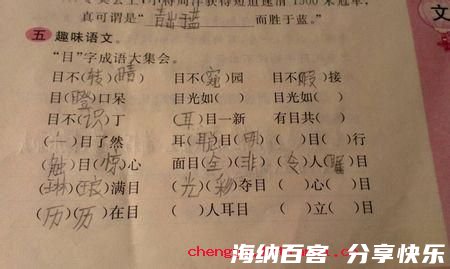 真可谓是“青出于蓝而胜于蓝。”
五 趣味语文。
“目”字成语大集会。
目不(转)(睛) 目不(窥)园 目不(暇)接
目(瞪)口呆 目光如( ) 目光如( )
目不(识)丁 (耳)目一新 有目共( )
(一)目了然 耳(聪)目(明) ( )目( )行
(触)目(惊)心 面目(全)(非) (令)人( )目
(琳)(琅)满目 (光)(彩)夺目 ( )心( )目
(历)(历)在目 ( )人耳目 ( )立( )目
文
海纳百客 分享快乐